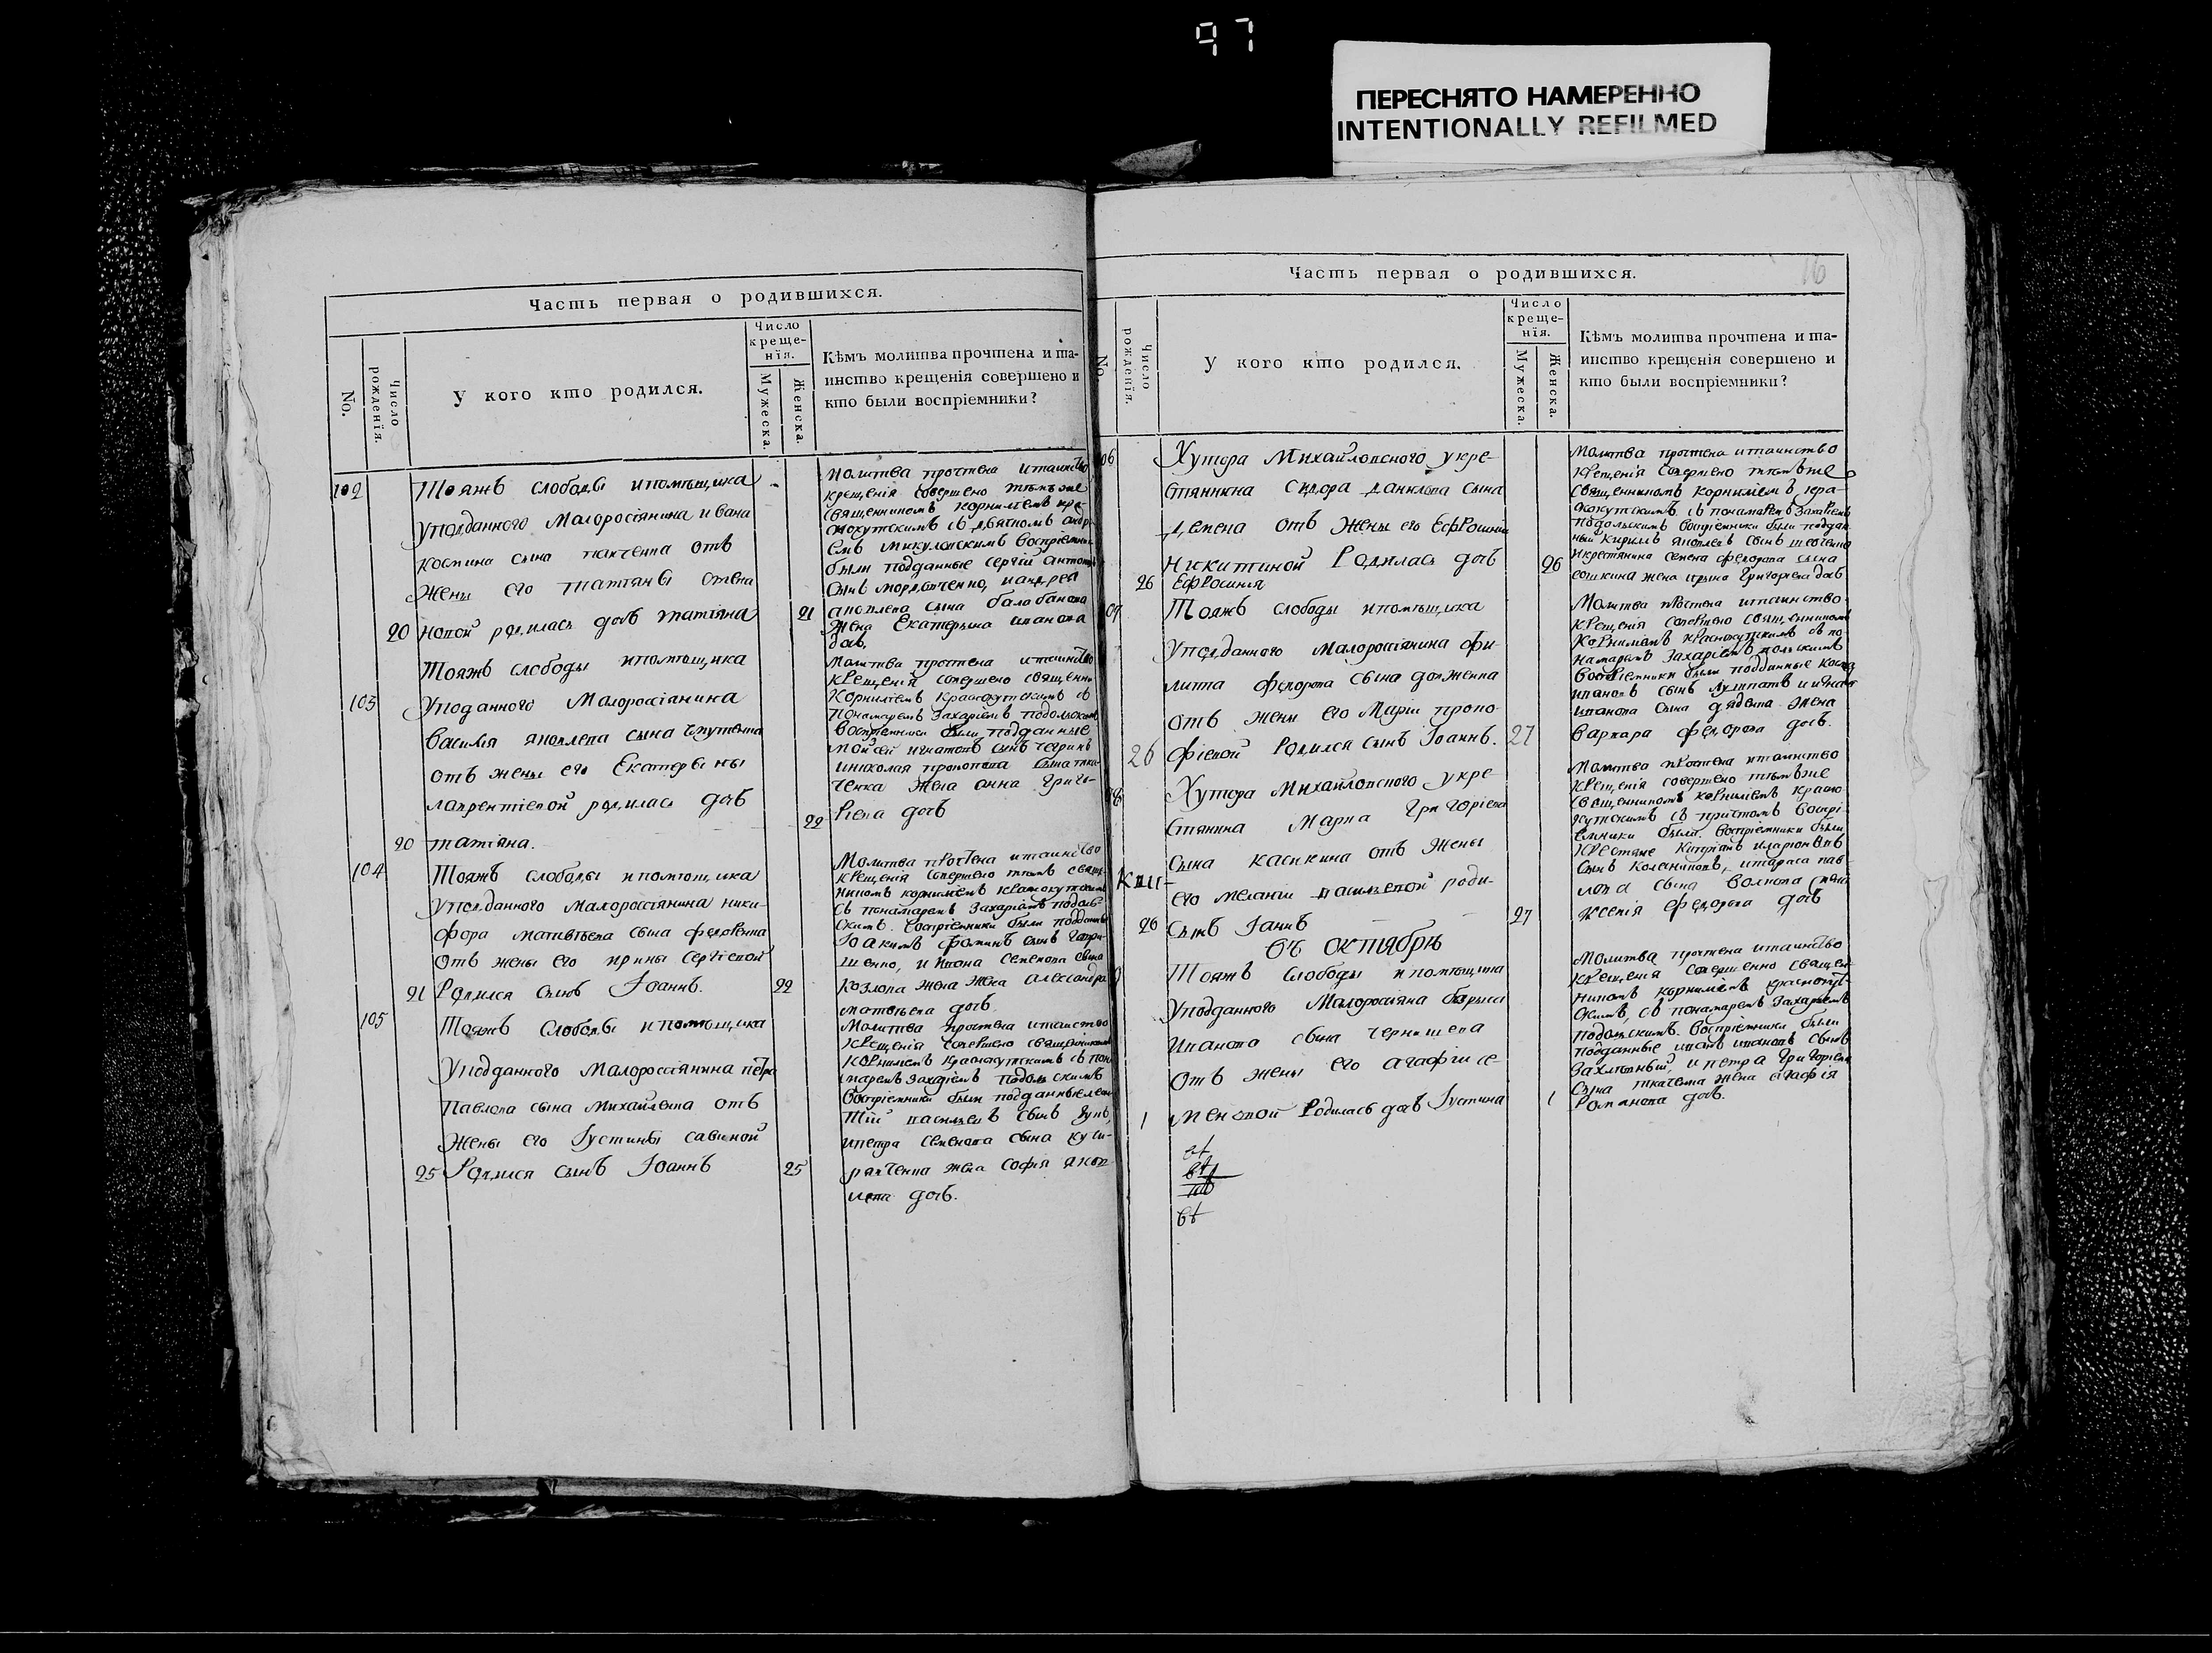 97
ПЕРЕСНЯТО НАМЕРЕННО
INTENTIONALLY REFILMED
Часть первая о родившихся.
No.
Число рожденїя.
У кого кто родился.
Число
креще-
нїя.
Мужеска.
Женска.
Кѣмъ молитва прочтена и та-
инство крещенїя совершено и
кто были воспрїемники?
102
Тояжъ слободы ипомѣщика
Уподданного Малоросіянина ивана
космина сына отъ
Жены его татіяны
20 новой родилась дочь татіяна
21
Молитва прочтена итаинство
крещенія совершено тѣмъ же
священникомъ корниліемъ кра-
снокутскимъ съ дьячкомъ
емъ микуловскимъ воспріемники
были подданные сергій
сынъ мордовченко, иандрея
сына балабанова
жена Екатерина иванова
дочь
103
Тояжъ слободы ипомѣщика
Уподанного Малороссіянина
Василія яковлева сына
отъ жены его Екатерины
лаврентіевой родилась дочь
20 татіяна.
22
Молитва прочтена итаинство
крещенія совершено священни
Корниліемъ Краснокутскимъ съ
Пономаремъ Захаріемъ подольскимъ
Воспріемники были подданные
мойсей игнатовъ сынъ
иниколая прокопова сына
ченка жена анна григо-
ріева дочь
104
Тояжъ слободы ипомѣщика
Уподданного малороссіянина ники-
фора матвѣева сына федоренка
отъ жены его ирины сергіевой
21 Родился сынъ Іоаннъ.
22
Молитва прочтена итаинство
крещенія совершено тѣмъ свяще
никомъ корниліемъ краснокутскимъ
съ пономаремъ Захаріемъ подоль-
скимъ. воспріемники были подданные
Іоакимъ фоминъ сынъ гаври-
шенко, и семенова сына
козлова жена жена александра
матвѣева дочь
105
Тояжъ Слободы ипомѣщика
Уподданного Малороссіянина петра
Павлова сына Михайленка отъ
Жены его Іустины савиной
25 Родился сынъ Іоаннъ
25
Молитва прочтена итаиство
крещенія совершено священникомъ
Корниліемъ Краснокутскимъ съ пон
маремъ Захаріемъ подольскимъ
воспріемники были подданные
тій васильевъ сынъ
ипетра семенова сына
жена софія яков-
лева дочь.
Часть первая о родившихся.
16
No.
Число рожденїя.
У кого кто родился.
Число
креще-
нїя.
Мужеска.
Женска.
Кѣмъ молитва прочтена и та-
инство крещенїя совершено и
кто были воспрїемники?
06
Хутора Михайловского укре-
стянина сидора данилова сына
демена отъ жены его Ефросиніи
Никитиной Родилась дочь
26 Ефросинія
26
Молитва прочтена итаинство
крещенія совершено тѣмъже
священникомъ корниліемъ кра-
нокутскимъ съ понамаремъ Захаріемъ
подольскимъ воспріемники были поддан
ный кирилъ яковлевъ сынъ шевченко
икрестянина семена федорова сына
сошкина жена ирына григоріева дочь
07
Тояжъ слободы ипомѣщика
Уподданного Малороссіянина фи-
липа федорова сына долженка
отъ жены его Маріи проко-
26 фіевой Родился сынъ Іоаннъ. 27
Молитва прочтена итаинство
крещенія совершено священникомъ
Корниліемъ краснокутскимъ съ по-
намаремъ Захаріемъ польскимъ
воспріемники были подданные косма
ивановъ сынъ иигнат
иванова сына дяденка жена
варвара федорова дочь.
08
Хутора Михайловского укре-
стянина Марка Григоріева
сына касикина отъ жены
его меланіи васильевой роди-
26 сынъ Іанъ
27
Молитва прочтена итаинство
крещенія совершено тѣмъже
священникомъ корниліемъ красно
кутскимъ съ пристомъ воспрі-
емники были. воспріемники были
крестяне кипріанъ иларіоновъ
сынъ колесниковъ, итараса пав-
лова сына волкова жена
ксенія федорова дочь
Кпи-
въ октябрѣ
9
Тояжъ слободы ипомѣщика
Уподданного Малоросіяна бориса
Иванова сына чернишева
отъ жены его агафіи се-
1 меновой Родилась дочь Іустина
1
Молитва прочтена итаинство
крещенія совершенно священ-
никомъ корниліемъ краснокут-
скимъ, съ понамаремъ Захаріемъ
подольскимъ. воспріемники были
подданные иванъ ивановъ сынъ
ипетра григоріева
сына ткаченка жена агафія
Романова дочь.